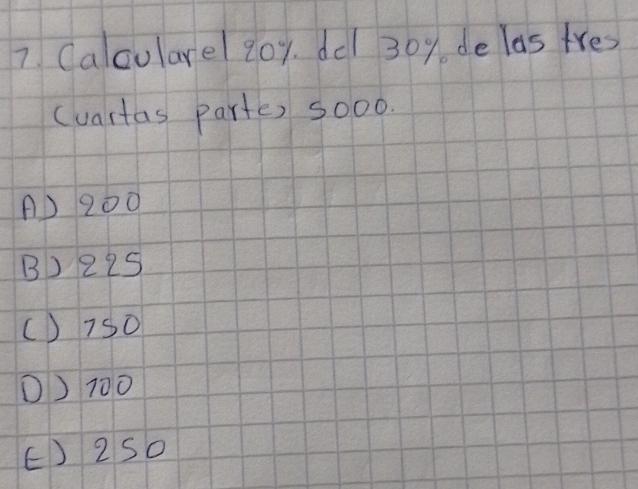 7. Calcular el 20% del 30% de las tres
cuartas partes 5000.
A) 200
B) 225
C) 750
D) 100
E) 250